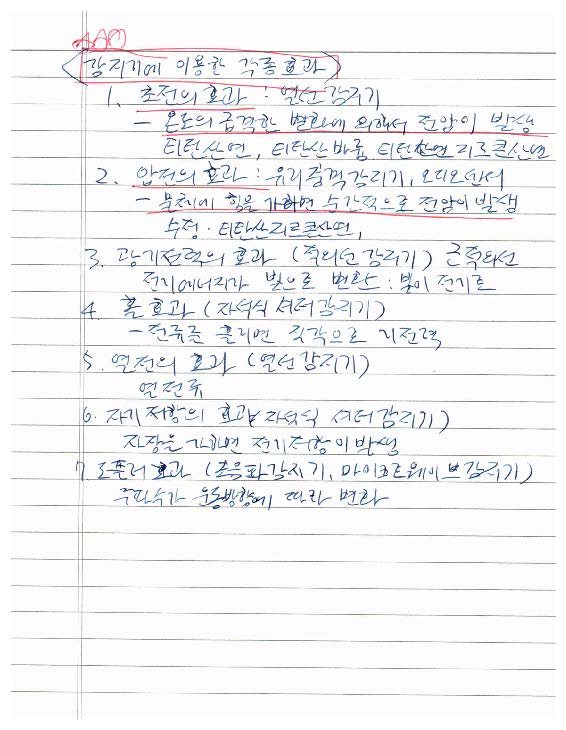 <감지기에 이용한 각종효과>
1. 초전의 효과 : 열선감지기
- 온도의 급격한 변화에 의해서 전압이 발생
티탄산연, 티탄산바륨, 티탄산연 지르콘산연
2. 압전의 효과 : 유리충격감지기, 오디오센서
- 물체에 힘을 가하면 순간적으로 전압이 발생
수정 · 티탄산지르콘산연,
3. 광기전력의 효과 (적외선감지기) 근적외선
전기에너지가 빛으로 변환 : 빛이 전기로
4. 홀효과 (자석식 셔터감지기)
- 전류를 흘리면 직각으로 기전력
5. 열전의 효과 (열선감지기)
열전류
6. 자기저항의 효과(자석식 셔터감지기)
자장을 가하면 전기저항이 발생
7. 도플러효과 (초음파감지기, 마이크로웨이브감지기)
주파수가 운동방향에 따라 변화